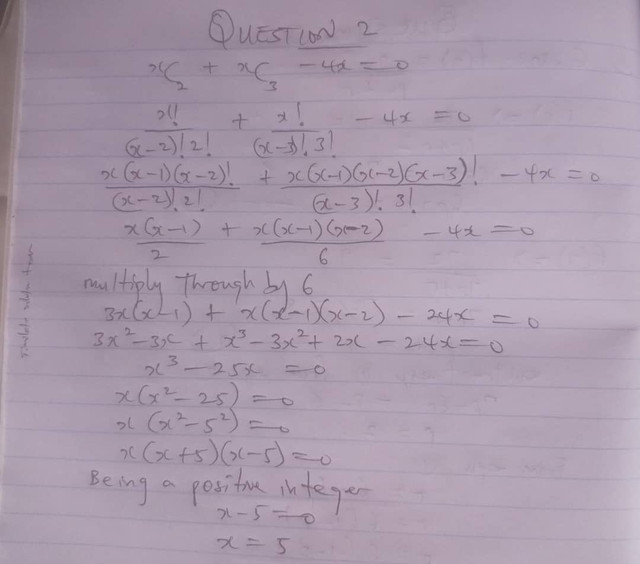 QUESTION 2
xC₂ + xC₃ - 4x = 0
x!/(x-2)!2! + x!/(x-3)!3! - 4x = 0
x(x-1)(x-2)!/(x-2)!2! + x(x-1)(x-2)(x-3)!/(x-3)!3! - 4x = 0
x(x-1)/2 + x(x-1)(x-2)/6 - 4x = 0
multiply through by 6
3x(x-1) + x(x-1)(x-2) - 24x = 0
3x² - 3x + x³ - 3x² + 2x - 24x = 0
x³ - 25x = 0
x(x² - 25) = 0
x(x² - 5²) = 0
x(x+5)(x-5) = 0
Being a positive integer
x - 5 = 0
x = 5